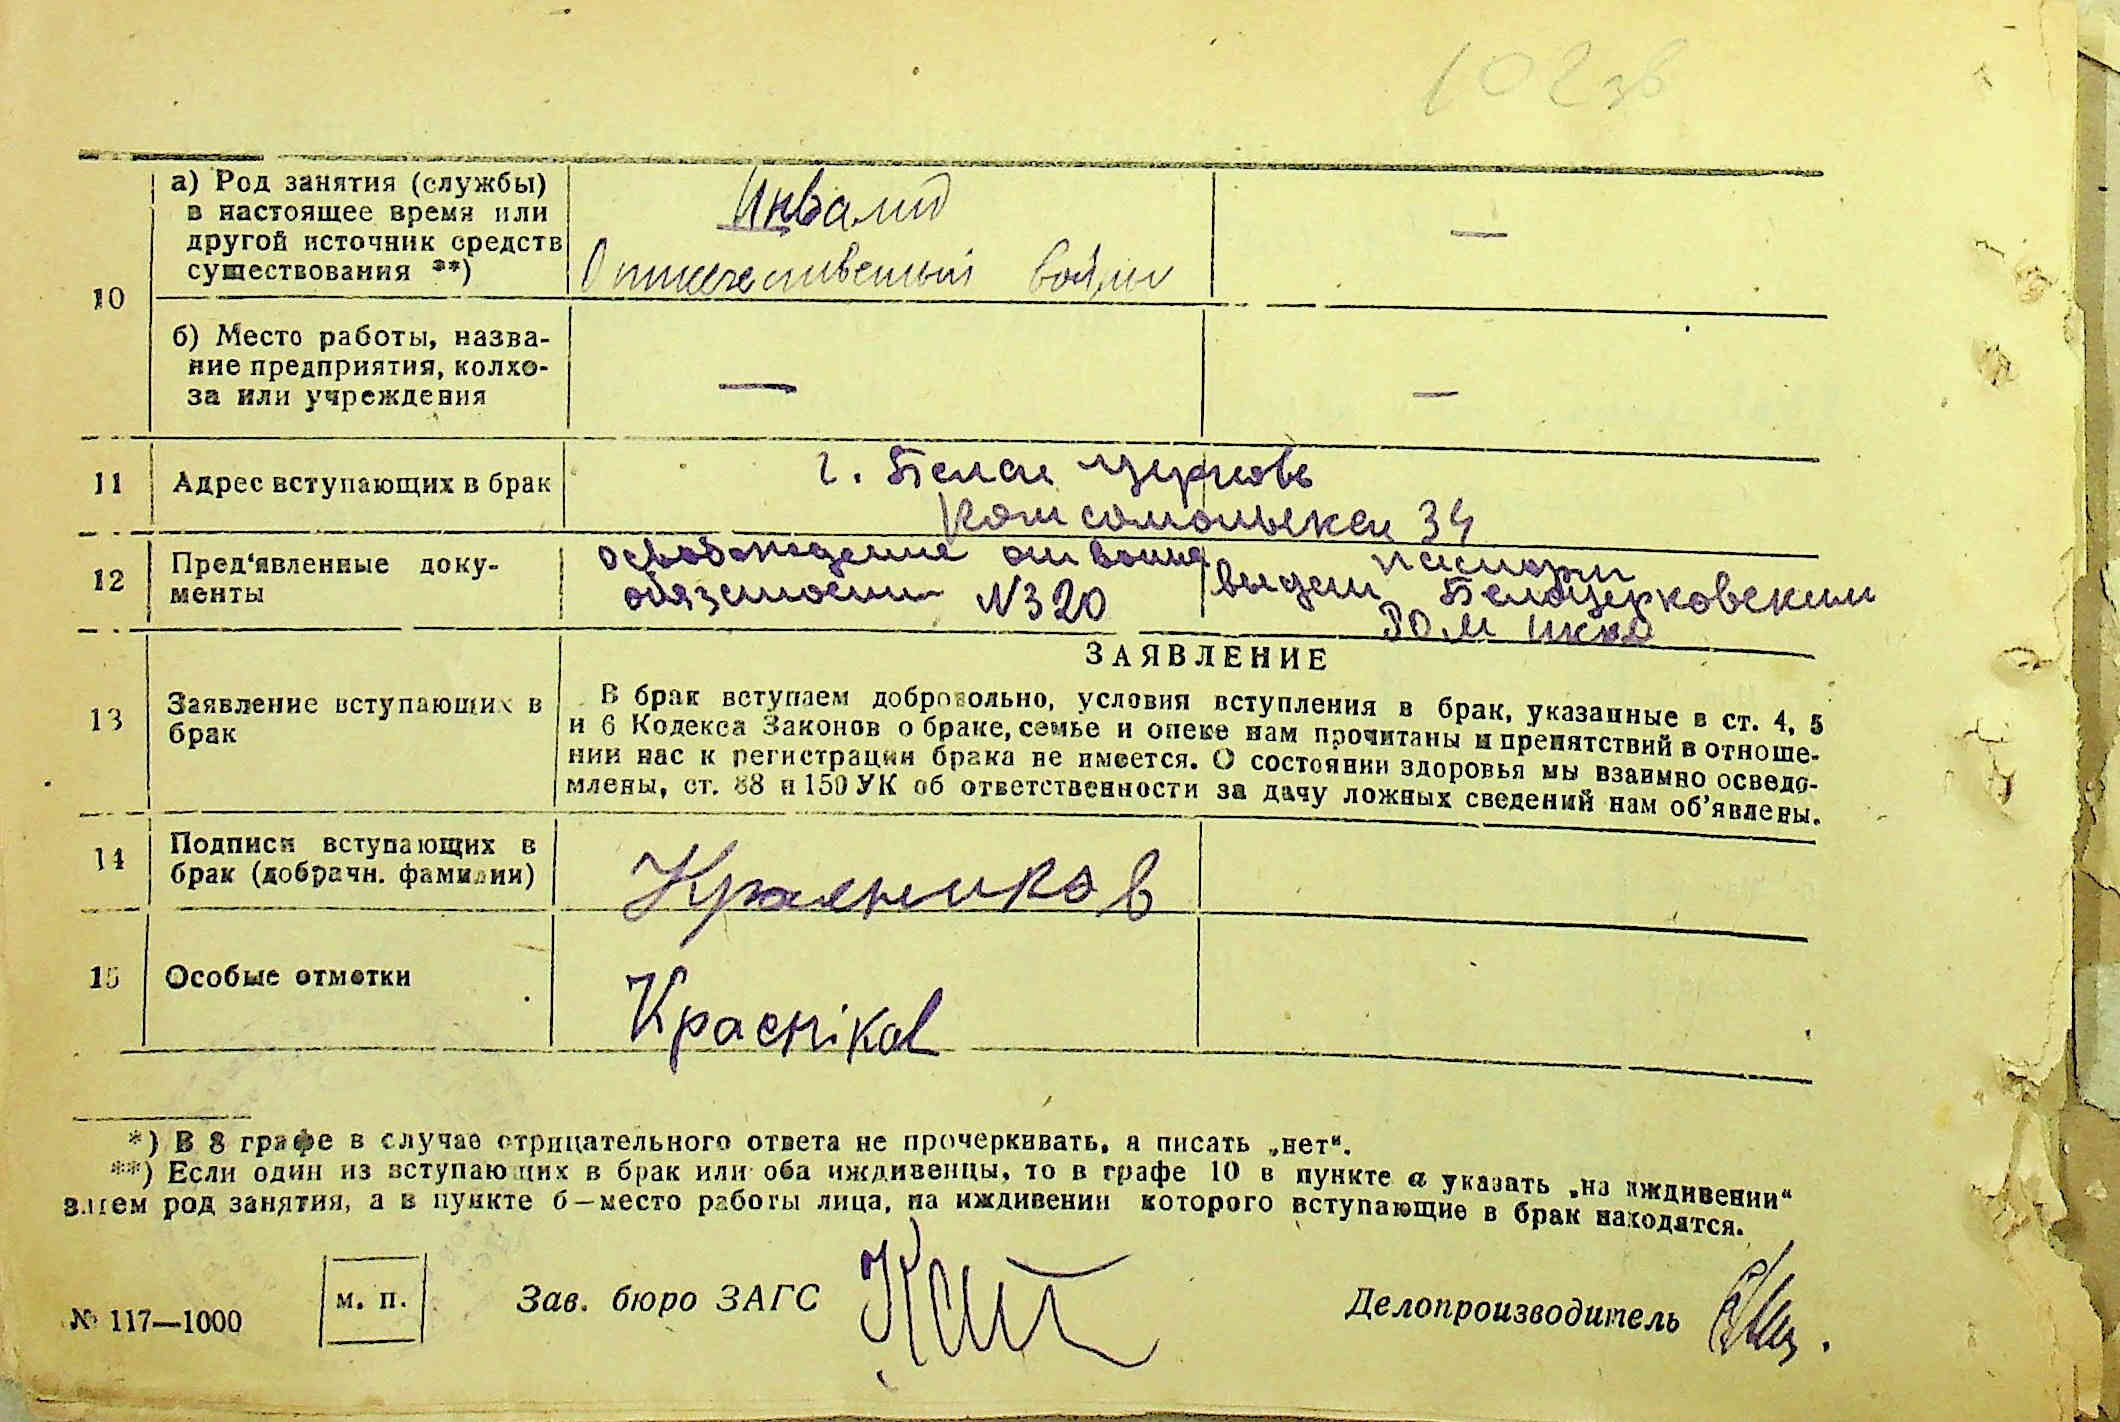 102 зв
10
а) Род занятия (службы)
в настоящее время или
другой источник средств
существования **)
Инвалид
Отечественый войны
—
б) Место работы, назва-
ние предприятия, колхо-
за или учреждения
—
—
11
Адрес вступающих в брак
г. Белая Церковь
Комсомольская 34
12
Пред'явленные доку-
менты
освобождение от воина
обязаности N320
паспорт
выдан Белоцерковским
13
Заявление вступающих в
брак
ЗАЯВЛЕНИЕ
В брак вступаем добровольно, условия вступления в брак, указанные в ст. 4, 5
и 6 Кодекса Законов о браке, семье и опеке нам прочитаны и препятствий в отноше-
нии нас к регистрации брака не имеется. О состоянии здоровья мы взаимно осведо-
млены, ст. 88 и 150 УК об ответственности за дачу ложных сведений нам об'явлены.
14
Подписи вступающих в
брак (добрачн. фамилии)
Красников
15
Особые отметки
Краснікова
*) В 8 графе в случае отрицательного ответа не прочеркивать, а писать „нет“.
**) Если один из вступающих в брак или оба иждивенцы, то в графе 10 в пункте а указать „на иждивении“
затем род занятия, а в пункте б—место работы лица, на иждивении которого вступающие в брак находятся.
№ 117—1000
м. п.
Зав. бюро ЗАГС
Делопроизводитель